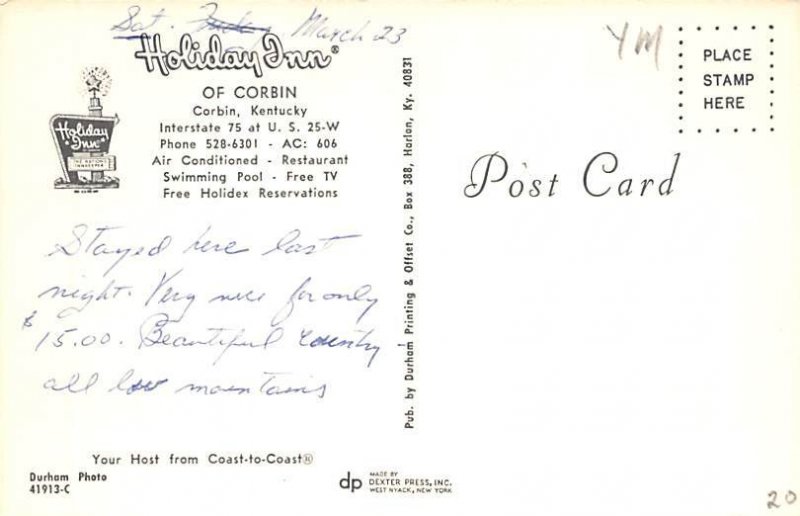 Sat. Friday March 23
YM
Holiday Inn®
OF CORBIN
Corbin, Kentucky
Interstate 75 at U. S. 25-W
Phone 528-6301 - AC: 606
Air Conditioned - Restaurant
Swimming Pool - Free TV
Free Holidex Reservations
Holiday
Inn
THE NATION'S
INNKEEPER
PLACE
STAMP
HERE
Post Card
Stayed here last
night. Very nice for only
$15.00. Beautiful country
all low mountains
Your Host from Coast-to-Coast®
Durham Photo
41913-C
Pub. by Durham Printing & Offset Co., Box 388, Harlan, Ky. 40831
dp
MADE BY
DEXTER PRESS, INC.
WEST NYACK, NEW YORK
20